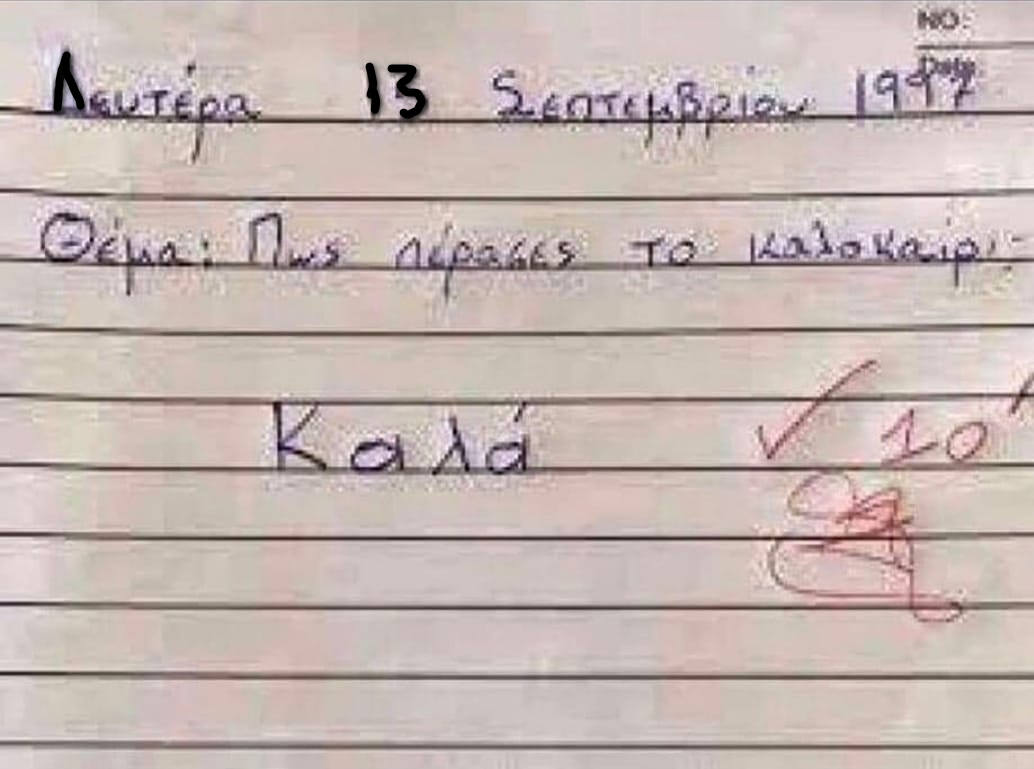 NO:
Date
Λευτέρα 13 Σεπτεμβρίου 1997
Θέμα: Πως πέρασες το καλοκαίρι;
Καλά ✓ 10